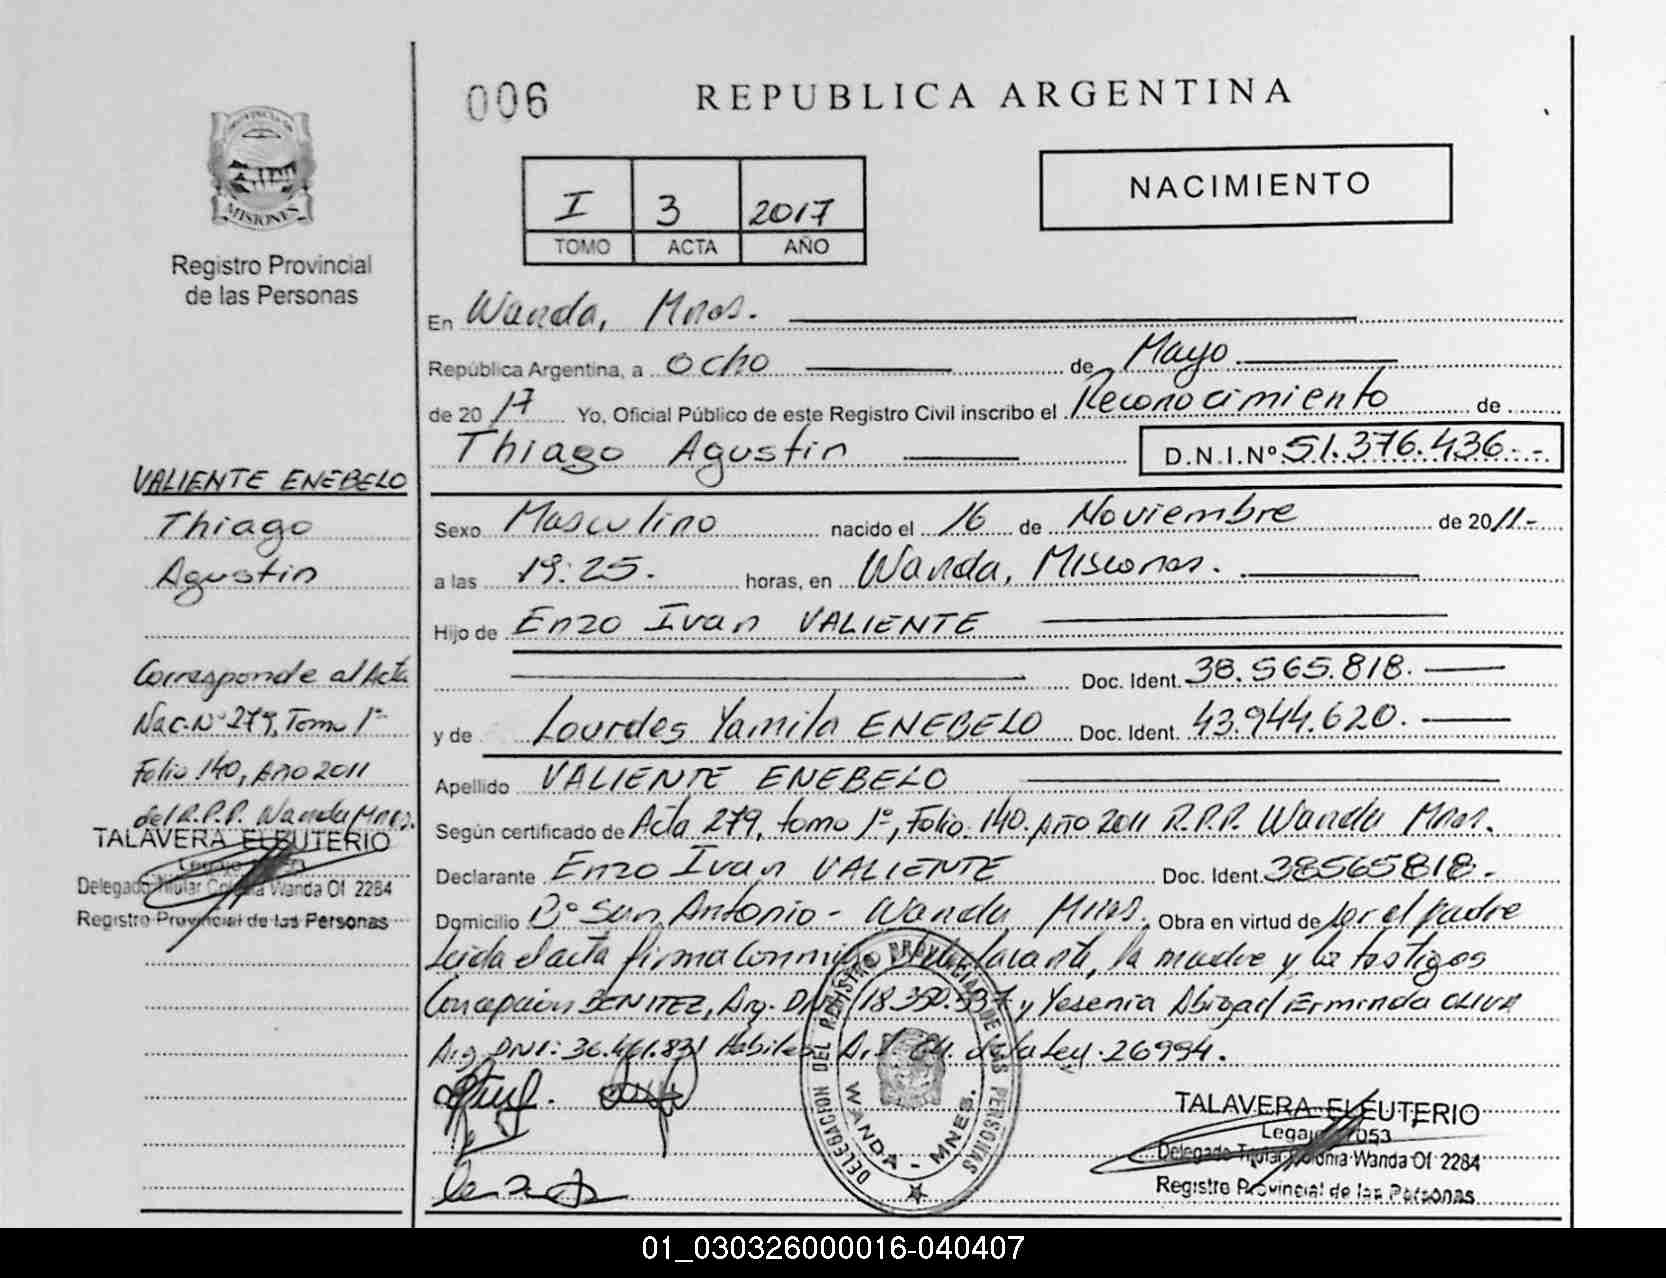 006
REPUBLICA ARGENTINA
PROVINCIA DE
MISIONES
Registro Provincial
de las Personas
I 3 2017
TOMO ACTA AÑO
NACIMIENTO
En Wanda, Mnes.
República Argentina, a ocho de Mayo
de 2017 Yo, Oficial Público de este Registro Civil inscribo el Reconocimiento de
Thiago Agustin D.N.I.Nº 51.376.436.-.-
Sexo Masculino nacido el 16 de Noviembre de 2011.-
a las 19:25. horas, en Wanda, Misiones.
Hijo de Enzo Ivan VALIENTE
Doc. Ident. 38.565.818.
y de Lourdes Yamila ENEBELO Doc. Ident. 43.944.620.
Apellido VALIENTE ENEBELO
Según certificado de Acta 279, tomo 1º, Folio 140, Año 2011 R.P.P. Wanda Mnes.
Declarante Enzo Ivan VALIENTE Doc. Ident. 38565818.-
Domicilio Bº San Antonio - Wanda Mnes. Obra en virtud de ser el padre
Leida el acta firma conmigo el declarante, la madre y los testigos
Concepción BENITEZ, Arg. DNI 18.350.537 y Yesenia Abigail Erminda OLIVA
Arg. DNI: 36.461.831 Habiles Art. 64 de la Ley 26994.
VALIENTE ENEBELO
Thiago
Agustin
Corresponde al Acta
Nac. Nº 279, Tomo 1º
Folio 140, Año 2011
del R.P.P. Wanda Mnes.
TALAVERA ELEUTERIO
Legajo
Delegado Titular Colonia Wanda Of 2284
Registro Provincial de las Personas
DELEGACION DEL REGISTRO PROVINCIAL DE LAS PERSONAS
WANDA - MNES.
TALAVERA ELEUTERIO
Legajo 2053
Delegado Titular Colonia Wanda Of 2284
Registro Provincial de las Personas
01_030326000016-040407